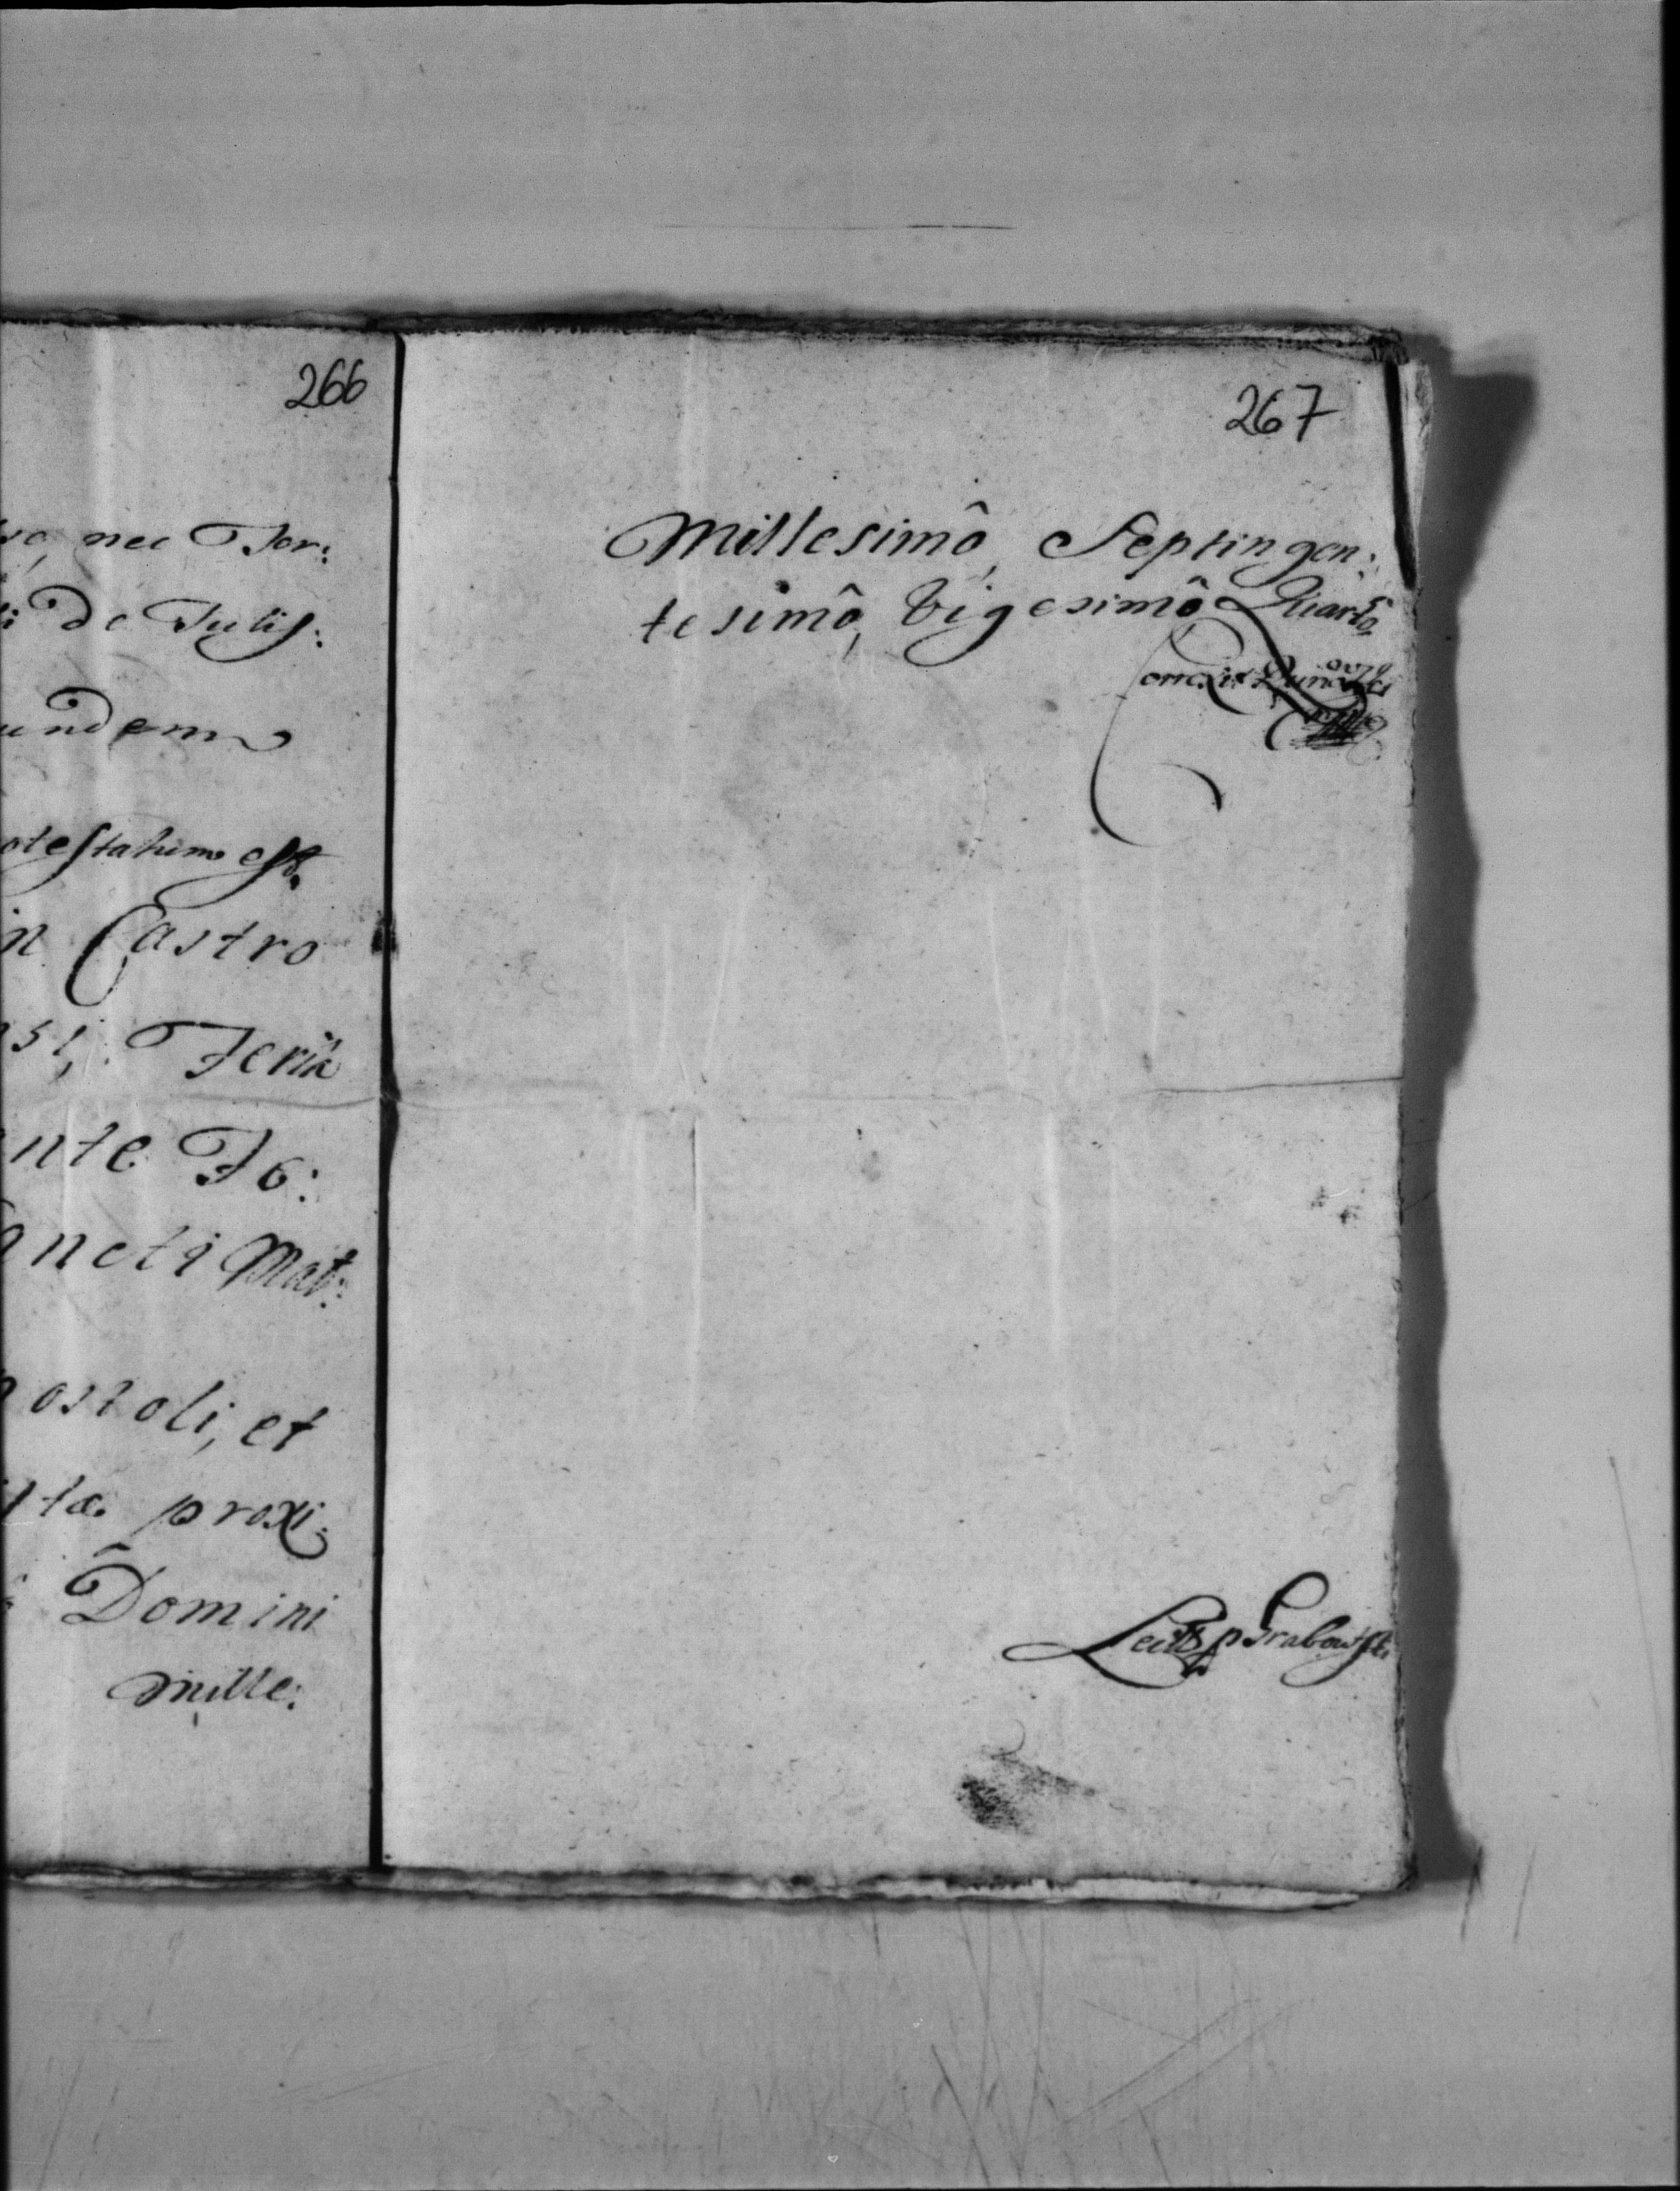 266
nec Ter:
de Julij:
undem
otestatum est.
in Castro
Feria
nte Fe:
ancti Mat:
ostoli, et
proxi:
Domini
mille:
267
Millesimô, Septingen:
tesimô, Vigesimô Quartô,
Correxit
Lectt p Grabowski